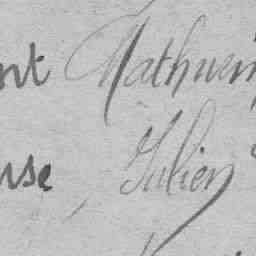 nt Mathurin
rse Julien